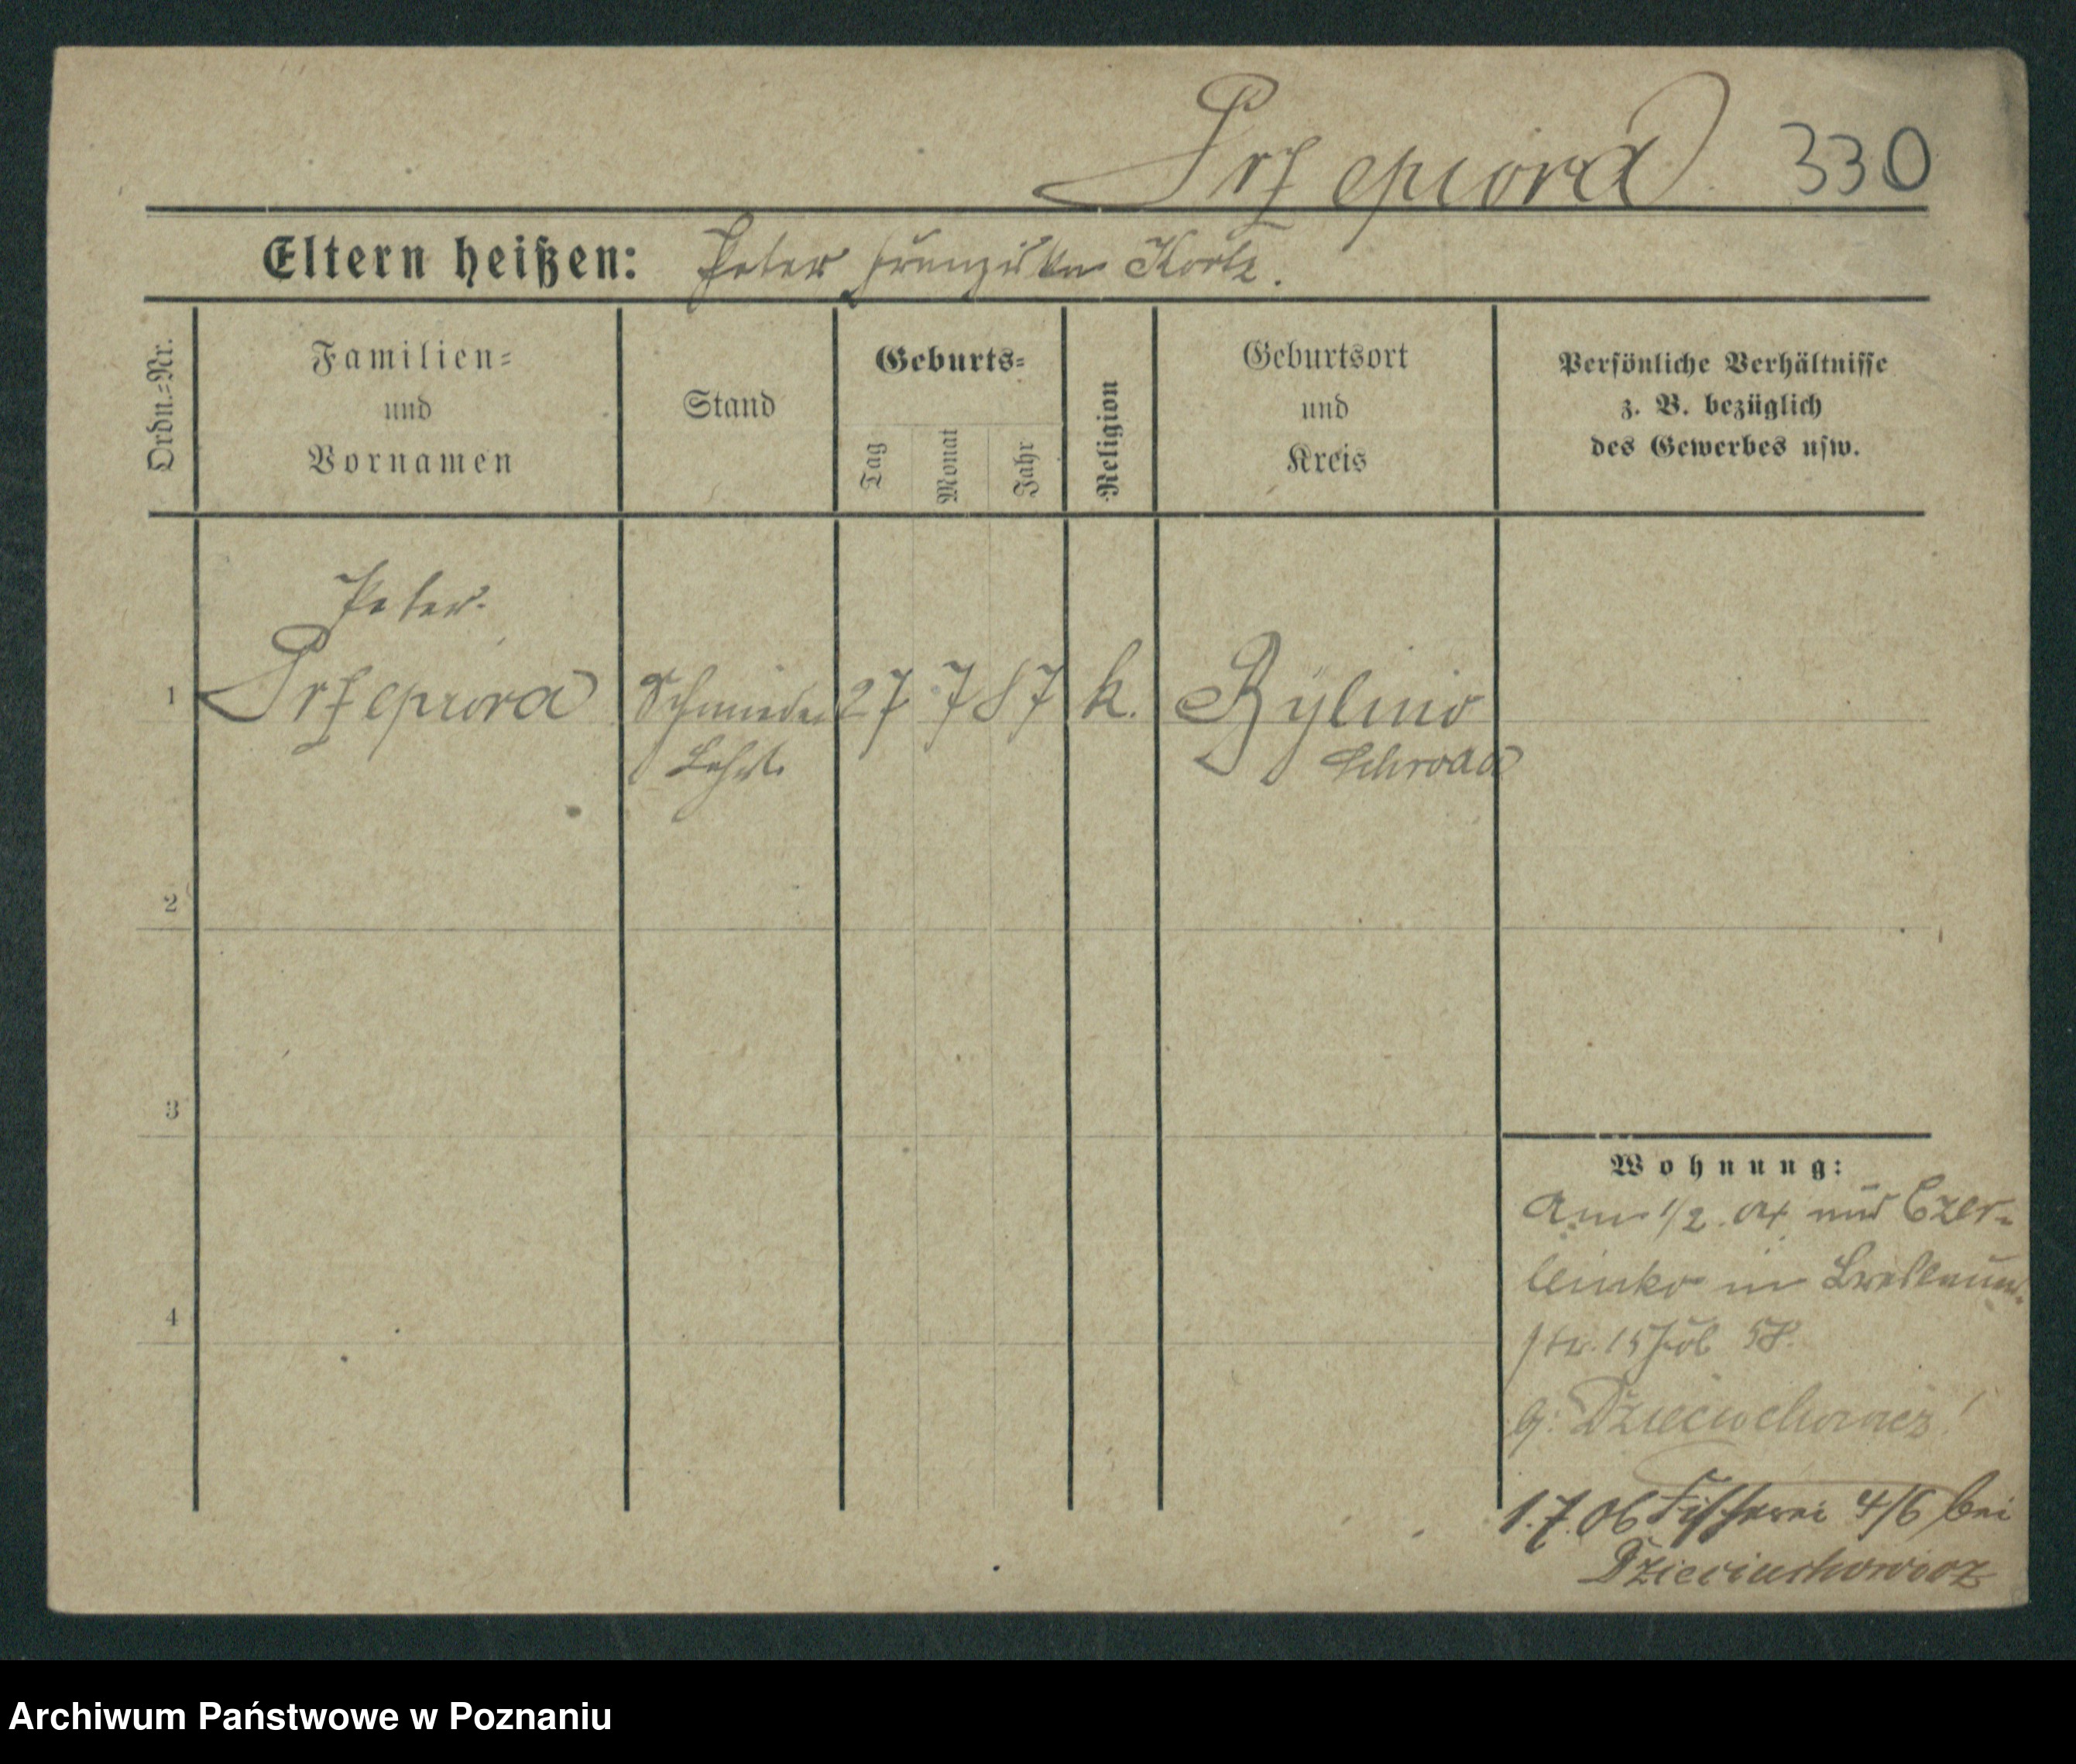 Przepiora 330
Eltern heißen: Peter Franziska Kortz.
Ordn.-Nr.
Familien-
und
Vornamen
Stand
Geburts-
Tag
Monat
Jahr
Religion
Geburtsort
und
Kreis
Persönliche Verhältnisse
z. B. bezüglich
des Gewerbes usw.
Peter
1 Przepiora Schmiede 27 7 87 k. Bylino
Lehrl. Schroda
2
3
4
Wohnung:
Am 1/2. 04 aus Czer-
leinko in Breslauer-
str. 15
b.
1.7.06 Fischerei 4/6 bei
Dzieciuchowicz
Archiwum Państwowe w Poznaniu